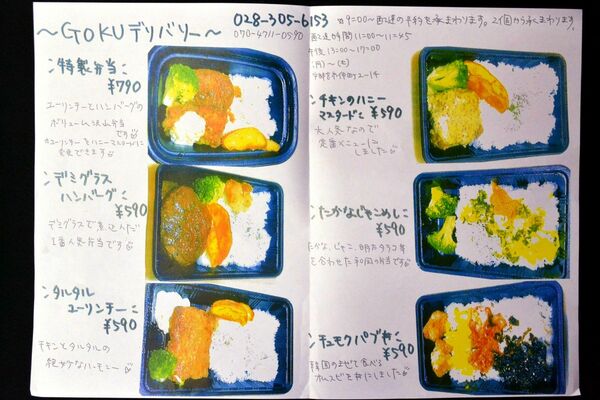 〜GOKUデリバリー〜
028-305-6153
070-4711-0590
9:00〜配達の予約を承まわります。2個から承まわります。
配達時間 11:00〜11:45
午後 13:00〜17:00
(月)〜(土)
特製弁当
¥790
ユーリンチーとハンバーグの
ボリューム沢山弁当
です
※ユーリンチーをハニーマスタードに
変更できます
デミグラス
ハンバーグ
¥590
デミグラスで煮込んだ
1番人気弁当です
タルタル
ユーリンチー
¥590
チキンとタルタルの
絶妙なハーモニー
チキンのハニー
マスタード ¥590
大人気なので
定番メニューに
しました
たかなじゃこめし
¥590
たかな、じゃこ、明太タラコ等
を合わせた和風の弁当です
チュモクパプ丼
¥590
韓国のまぜて食べる
オムスビを丼にしました